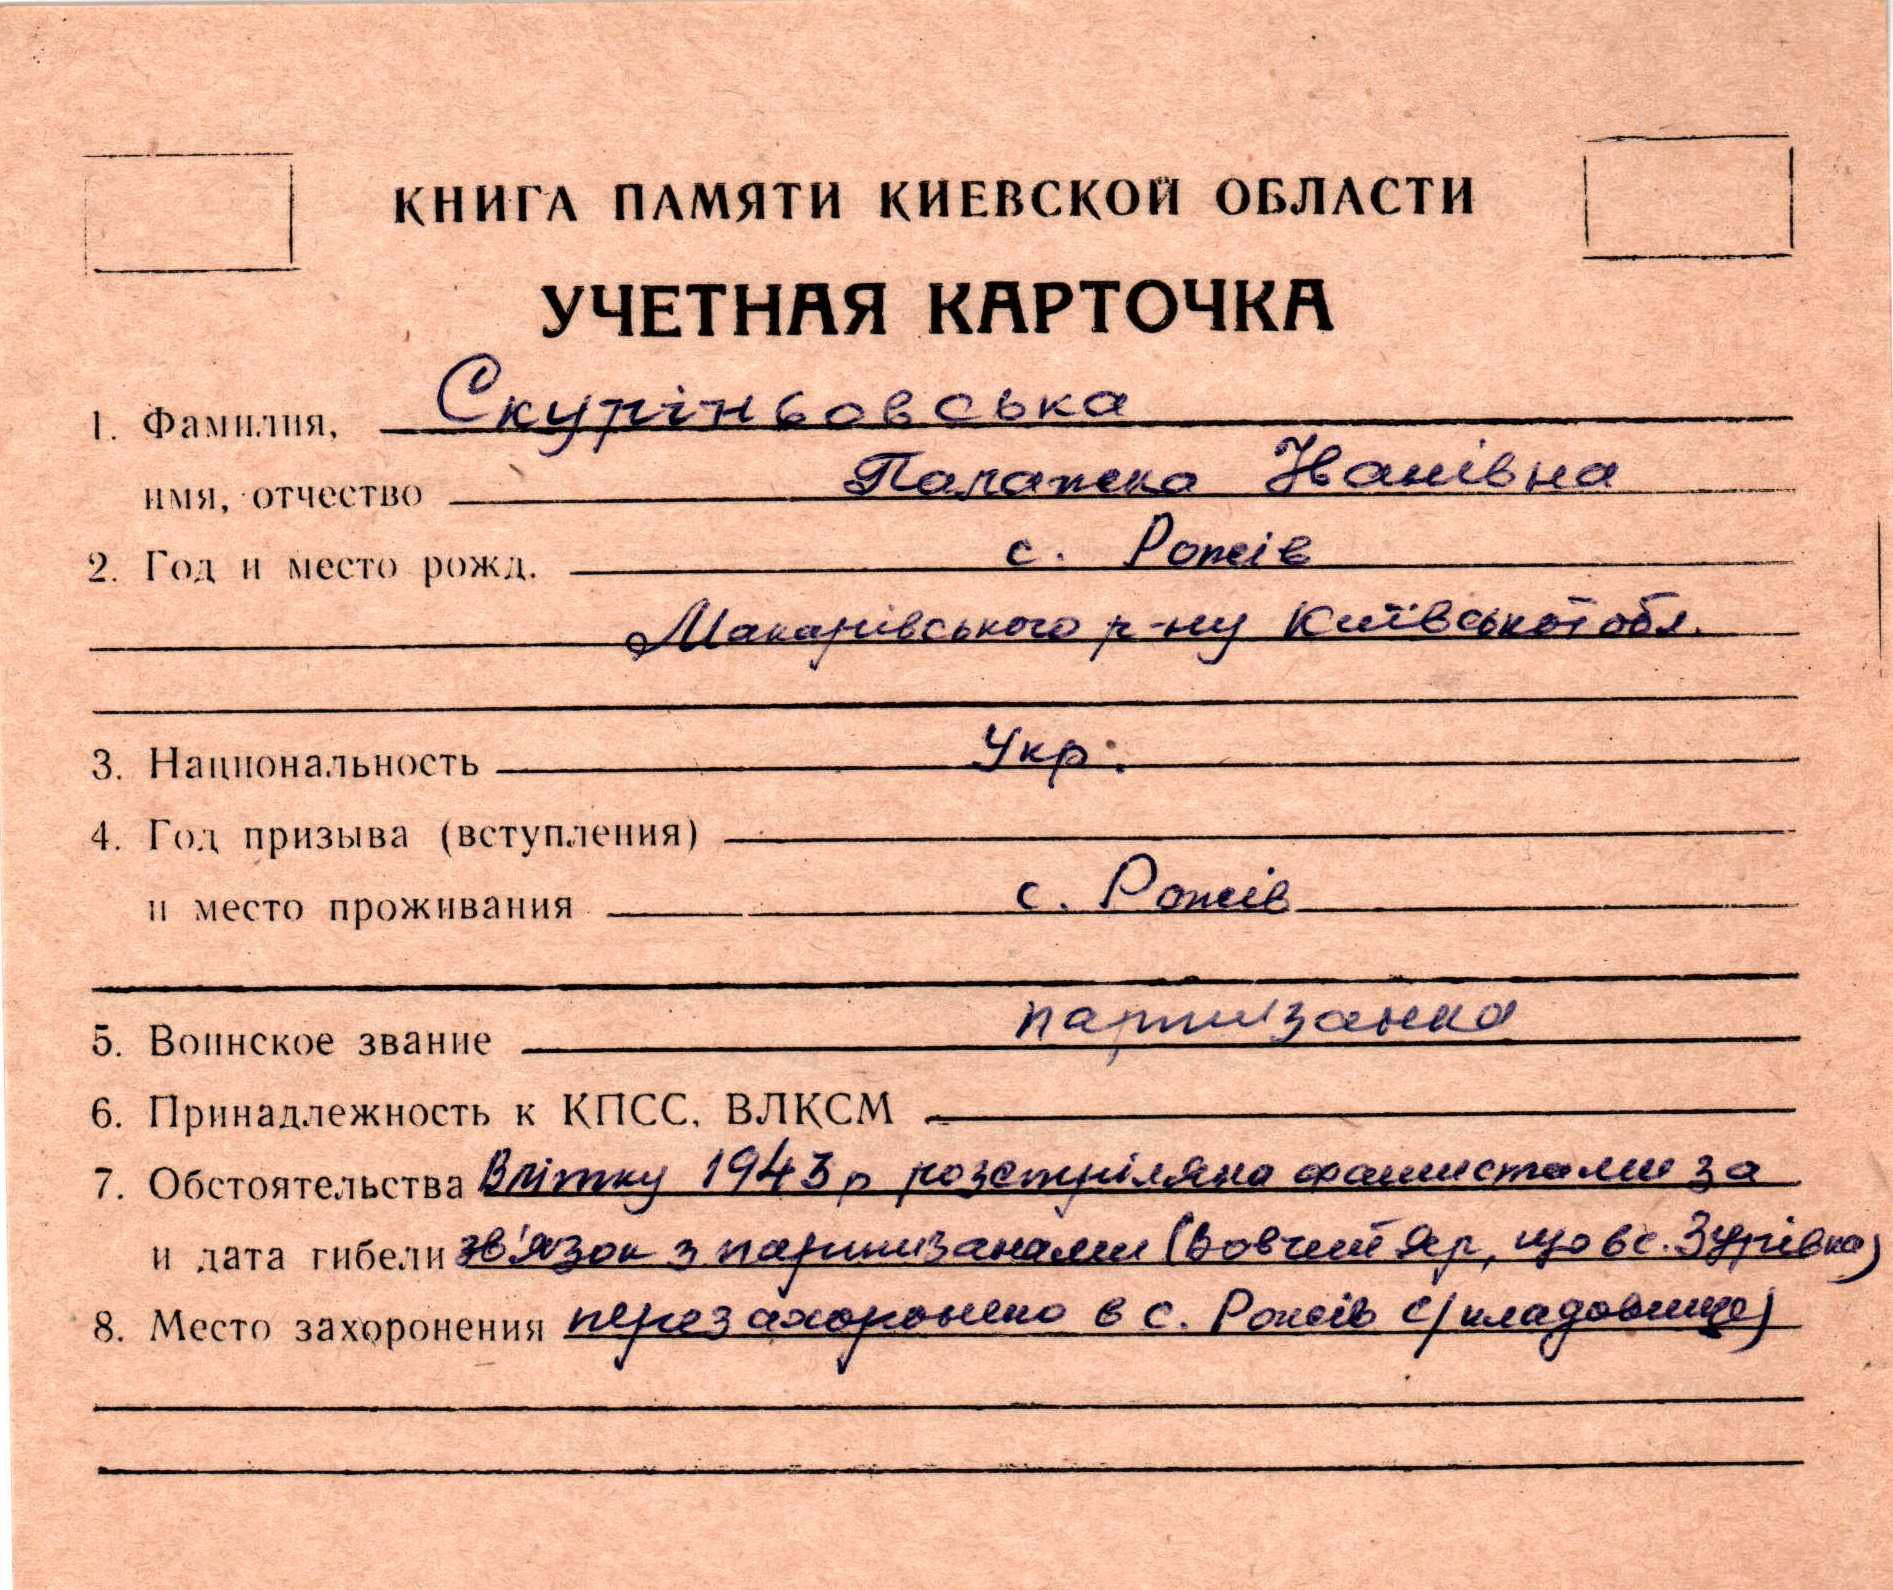 КНИГА ПАМЯТИ КИЕВСКОЙ ОБЛАСТИ
УЧЕТНАЯ КАРТОЧКА
1. Фамилия, Скуріньовська
имя, отчество Палажка Іванівна
2. Год и место рожд. с. Рожів
Макарівського р-ну Київської обл.
3. Национальность Укр.
4. Год призыва (вступления)
и место проживания с. Рожів
5. Воинское звание партизанка
6. Принадлежность к КПСС, ВЛКСМ
7. Обстоятельства Влітку 1943 р розстріляна фашистами за
и дата гибели зв'язок з партизанами (Вовчий Яр, що в с. Зурівка)
8. Место захоронения перезахоронено в с. Рожів (кладовище)